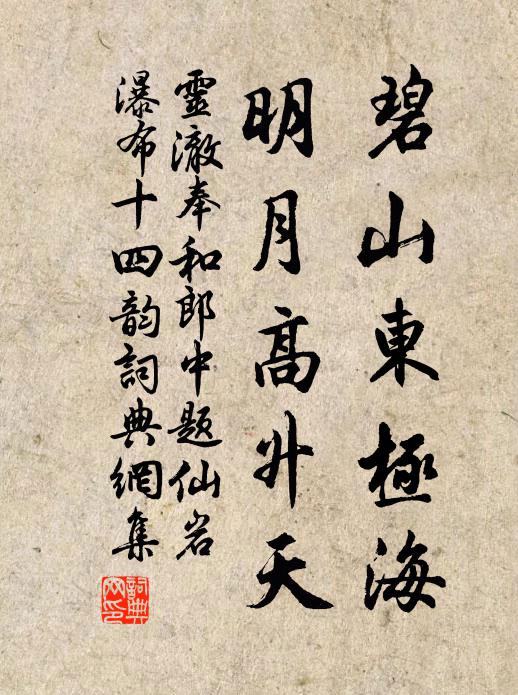 碧山東極海
明月高升天
靈澈奉和郎中題仙岩
瀑布十四韵詞典網集